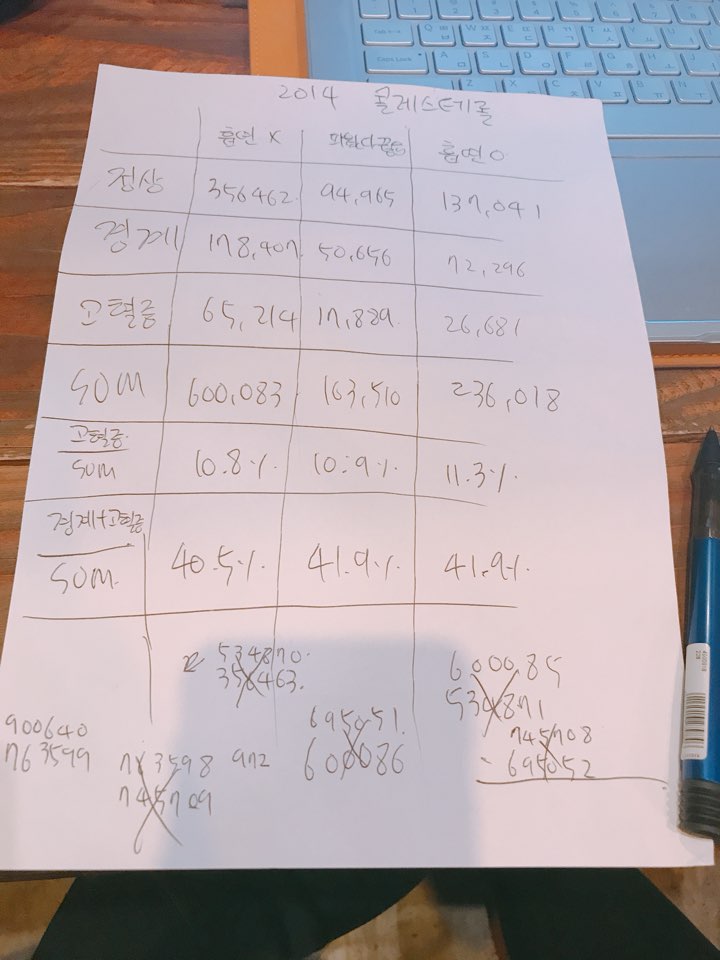 2014 콜레스테롤
흡연 X 피웠다 끊음 흡연 O
정상 356462 94,965 137,041
경계 178,407 50,656 72,296
고혈증 65,214 17,889 26,681
SUM 600,083 163,510 236,018
고혈증
SUM 10.8% 10.9% 11.3%
경계+고혈증
SUM 40.5% 41.9% 41.9%
534870
356463
600085
534871
695051
600086
745708
- 695052
900640
763599
763598 972
745709